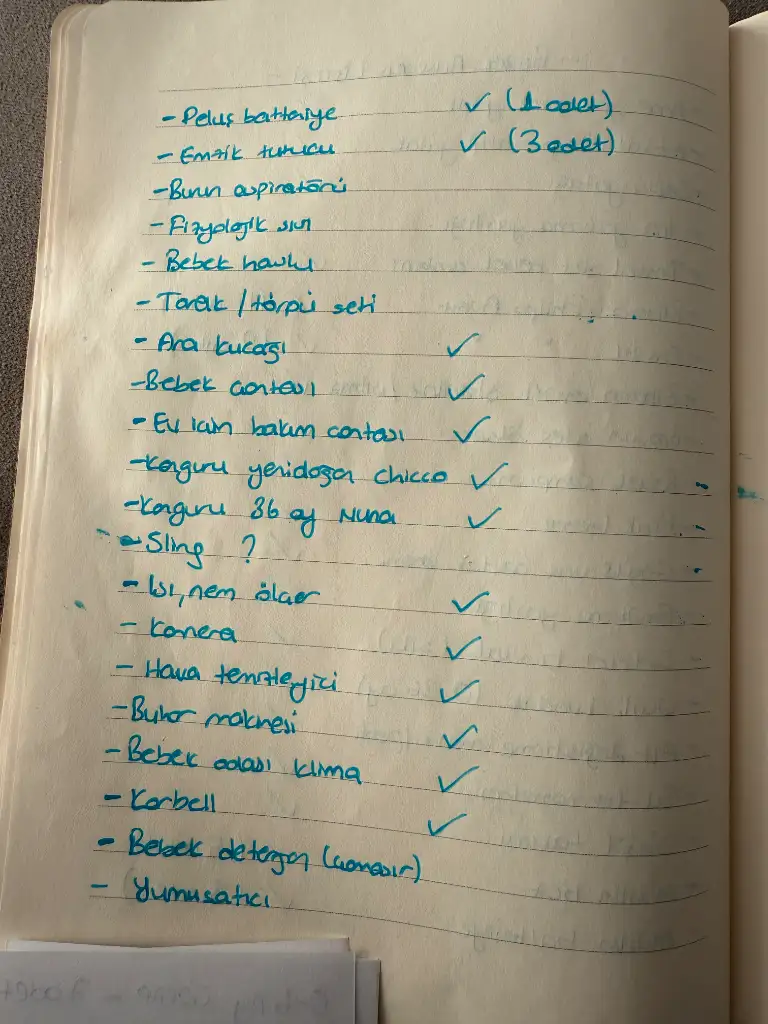 - Peluş battaniye ✓ (1 adet)
- Emzik tutucu ✓ (3 adet)
- Burun aspiratörü
- Fizyolojik sıvı
- Bebek havlu
- Tarak / törpü seti
- Ana kucağı ✓
- Bebek çantası ✓
- Ev için bakım çantası ✓
- Kanguru yenidoğan chicco ✓
- Kanguru 36 ay Nuna ✓
- Sling ?
- Isı, nem ölçer ✓
- Kamera ✓
- Hava temizleyici ✓
- Buhar makinesi ✓
- Bebek odası klima ✓
- Korbell ✓
- Bebek deterjan (çamaşır)
- Yumuşatıcı